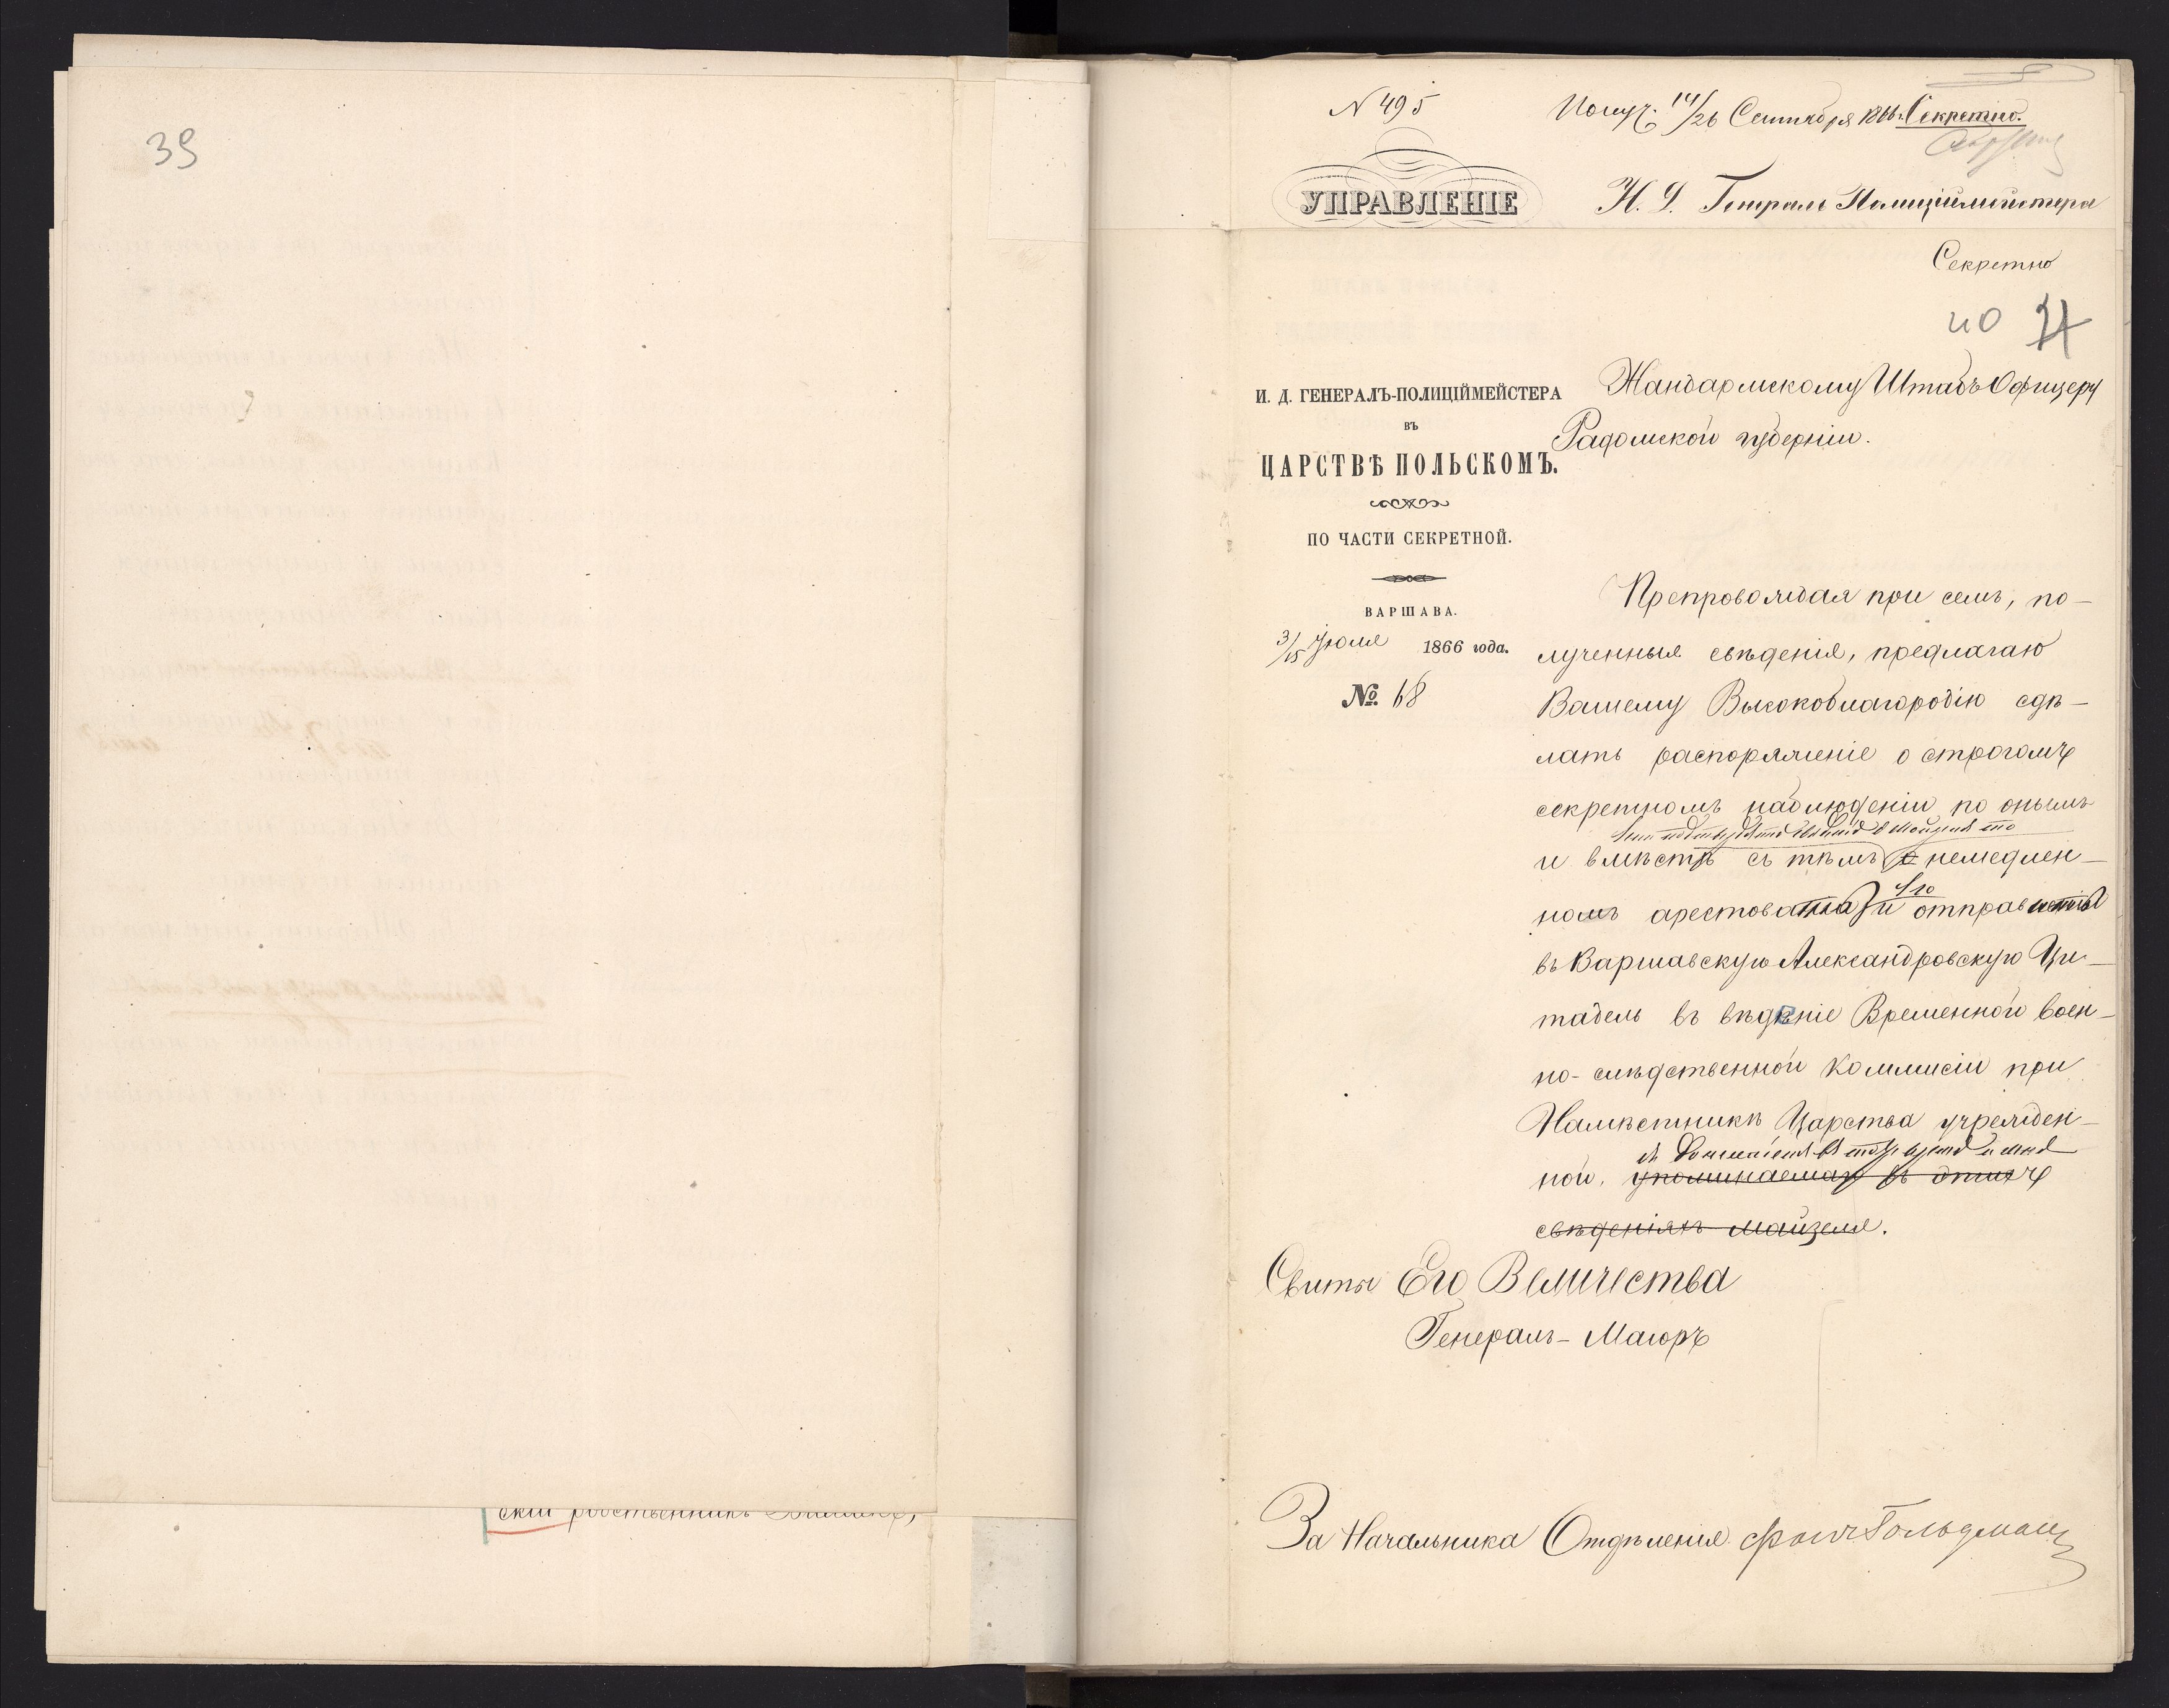 39
скій родственникъ
N 495
Получ. 14/26 Сентября 1866 г. Секретно.
УПРАВЛЕНІЕ
И. Д. Генералъ Полиціймейстера
Секретно
40
И. Д. ГЕНЕРАЛЪ-ПОЛИЦІЙМЕЙСТЕРА
въ
ЦАРСТВѢ ПОЛЬСКОМЪ.
ПО ЧАСТИ СЕКРЕТНОЙ.
ВАРШАВА.
3/15 Іюля 1866 года.
№ 68
Жандармскому Штабъ Офицеру
Радомской губерніи.
Препровождая при семъ, по-
лученныя свѣденія, предлагаю
Вашему Высокоблагородію сдѣ-
лать распоряженіе о строгомъ
секретномъ наблюденіи по онымъ
и вмѣстѣ съ тѣмъ о немедлен-
номъ арестова и отправ
его
въ Варшавскую Александровскую Ци-
тадель въ вѣдѣніе Временной воен-
но-слѣдственной Коммисіи при
Намѣстникѣ Царства учрежден-
ной, упоминаемаго въ этихъ
свѣденіяхъ Майзеля.
Свиты Его Величества
Генералъ-Маіоръ
За Начальника Отдѣленія фонъ Гольдманъ